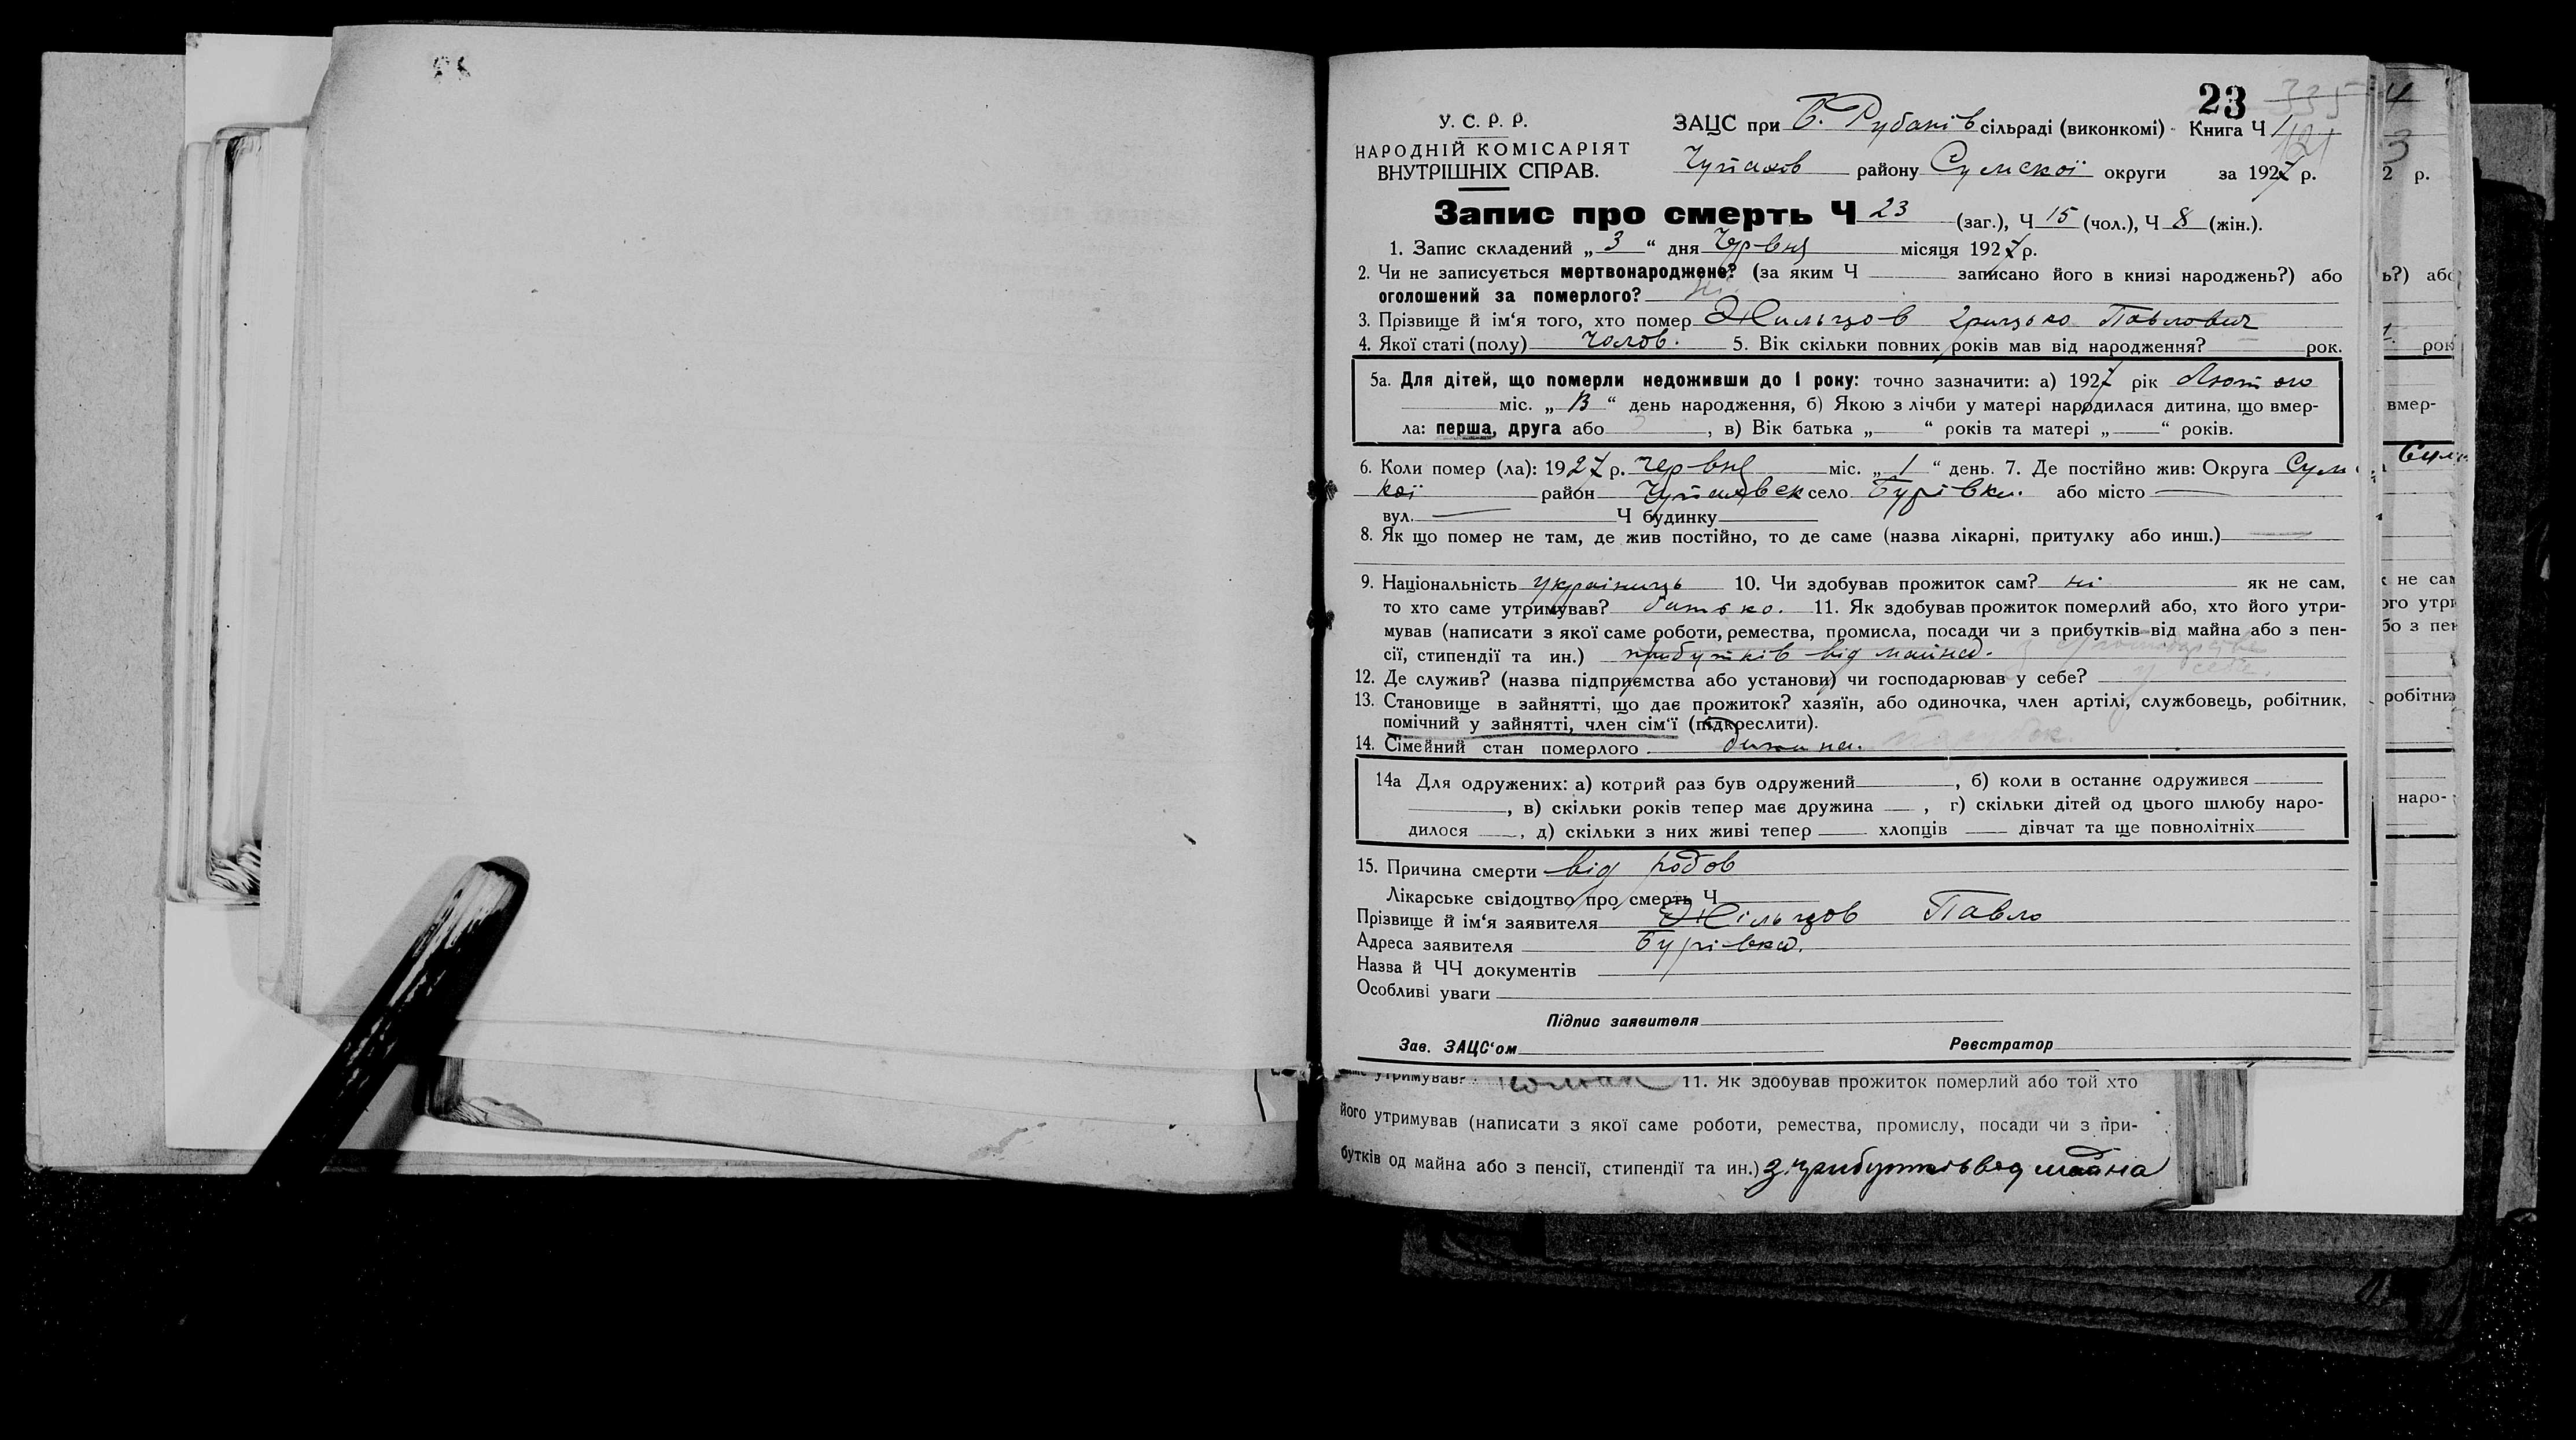 23 335
У. С. Р. Р.
ЗАЦС при Б. Рубанів сільраді (виконкомі) Книга Ч 1
121
НАРОДНІЙ КОМІСАРІЯТ
ВНУТРІШНІХ СПРАВ.
Чупахов району Сумской округи за 1927 р.
Запис про смерть Ч 23 (заг.), Ч 15 (чол.), Ч 8 (жін.).
1. Запис складений „ 3 “ дня Червня місяця 1927 р.
2. Чи не записується мертвонароджене? (за яким Ч записано його в книзі народжень?) або
оголошений за померлого? ні
3. Прізвище й ім‘я того, хто помер Жильцов Грицько Павлович
4. Якої статі (полу) Чолов. 5. Вік скільки повних років мав від народження? рок.
5а. Для дітей, що померли недоживши до І року: точно зазначити: а) 1927 рік Лютого
міс. „ 13 “ день народження, б) Якою з лічби у матері народилася дитина, що вмер-
ла: перша, друга або 3, в) Вік батька „ “ років та матері „ “ років.
6. Коли помер (ла): 1927 р. червня міс. „ 1 “ день. 7. Де постійно жив: Округа Сумс
кої район Чупахвск село Бурівки. або місто
вул. Ч будинку
8. Як що помер не там, де жив постійно, то де саме (назва лікарні, притулку або инш.)
9. Національність українць 10. Чи здобував прожиток сам? ні як не сам,
то хто саме утримував? батько. 11. Як здобував прожиток померлий або, хто його утри-
мував (написати з якої саме роботи, ремества, промисла, посади чи з прибутків від майна або з пен-
сії, стипендії та ин.) прибутків від майна.
12. Де служив? (назва підприємства або установи) чи господарював у себе? у себе.
13. Становище в зайнятті, що дає прожиток? хазяїн, або одиночка, член артілі, службовець, робітник,
помічний у зайнятті, член сім‘ї (підкреслити).
14. Сімейний стан померлого дитина.
14а Для одружених: а) котрий раз був одружений , б) коли в останнє одружився
, в) скільки років тепер має дружина , г) скільки дітей од цього шлюбу наро-
дилося , д) скільки з них живі тепер хлопців дівчат та ще повнолітніх
15. Причина смерти від родов
Лікарське свідоцтво про смерть Ч
Прізвище й ім‘я заявителя Жільцов Павло
Адреса заявителя Бурівка.
Назва й ЧЧ документів
Особливі уваги
Підпис заявителя
Зав. ЗАЦС‘ом Реєстратор
утримував? 11. Як здобував прожиток померлий або той хто
його утримував (написати з якої саме роботи, ремества, промислу, посади чи з при-
бутків од майна або з пенсії, стипендії та ин.) з прибутків від майна
4
3
2 р.
ь?) або
рок
вмер-
Сум
не сам
ого утри
бо з пен
робітник
наро-